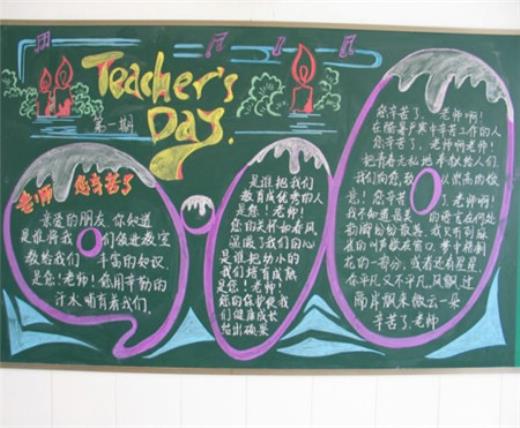 Teacher's
Day.
第一期
老师 您辛苦了
亲爱的朋友 你知道
是谁将我们 们领进教室
教给我们 丰富的知识
是您!老师!您用辛勤的
汗水哺育着我们.
是谁把我们
教育成优秀的人
是您!老师!
您的关怀如春风
温暖了我们的心
是谁把幼小的
我们培育成熟
是您!老师!
您的保护使我
们健康成长
结出硕果
您辛苦了. 老师啊!
在酷暑严寒中辛苦工作的人
您辛苦了. 老师啊老师!
把青春无私地奉献给人们.
我们向您致 以崇高的
您!您辛苦 了.老师啊!
我不知道最美 的语言在何处
的叫声
花的一部分,或者还有星星.
你平凡又不平凡,风飘过
高岸飘来微云一朵
辛苦了.老师